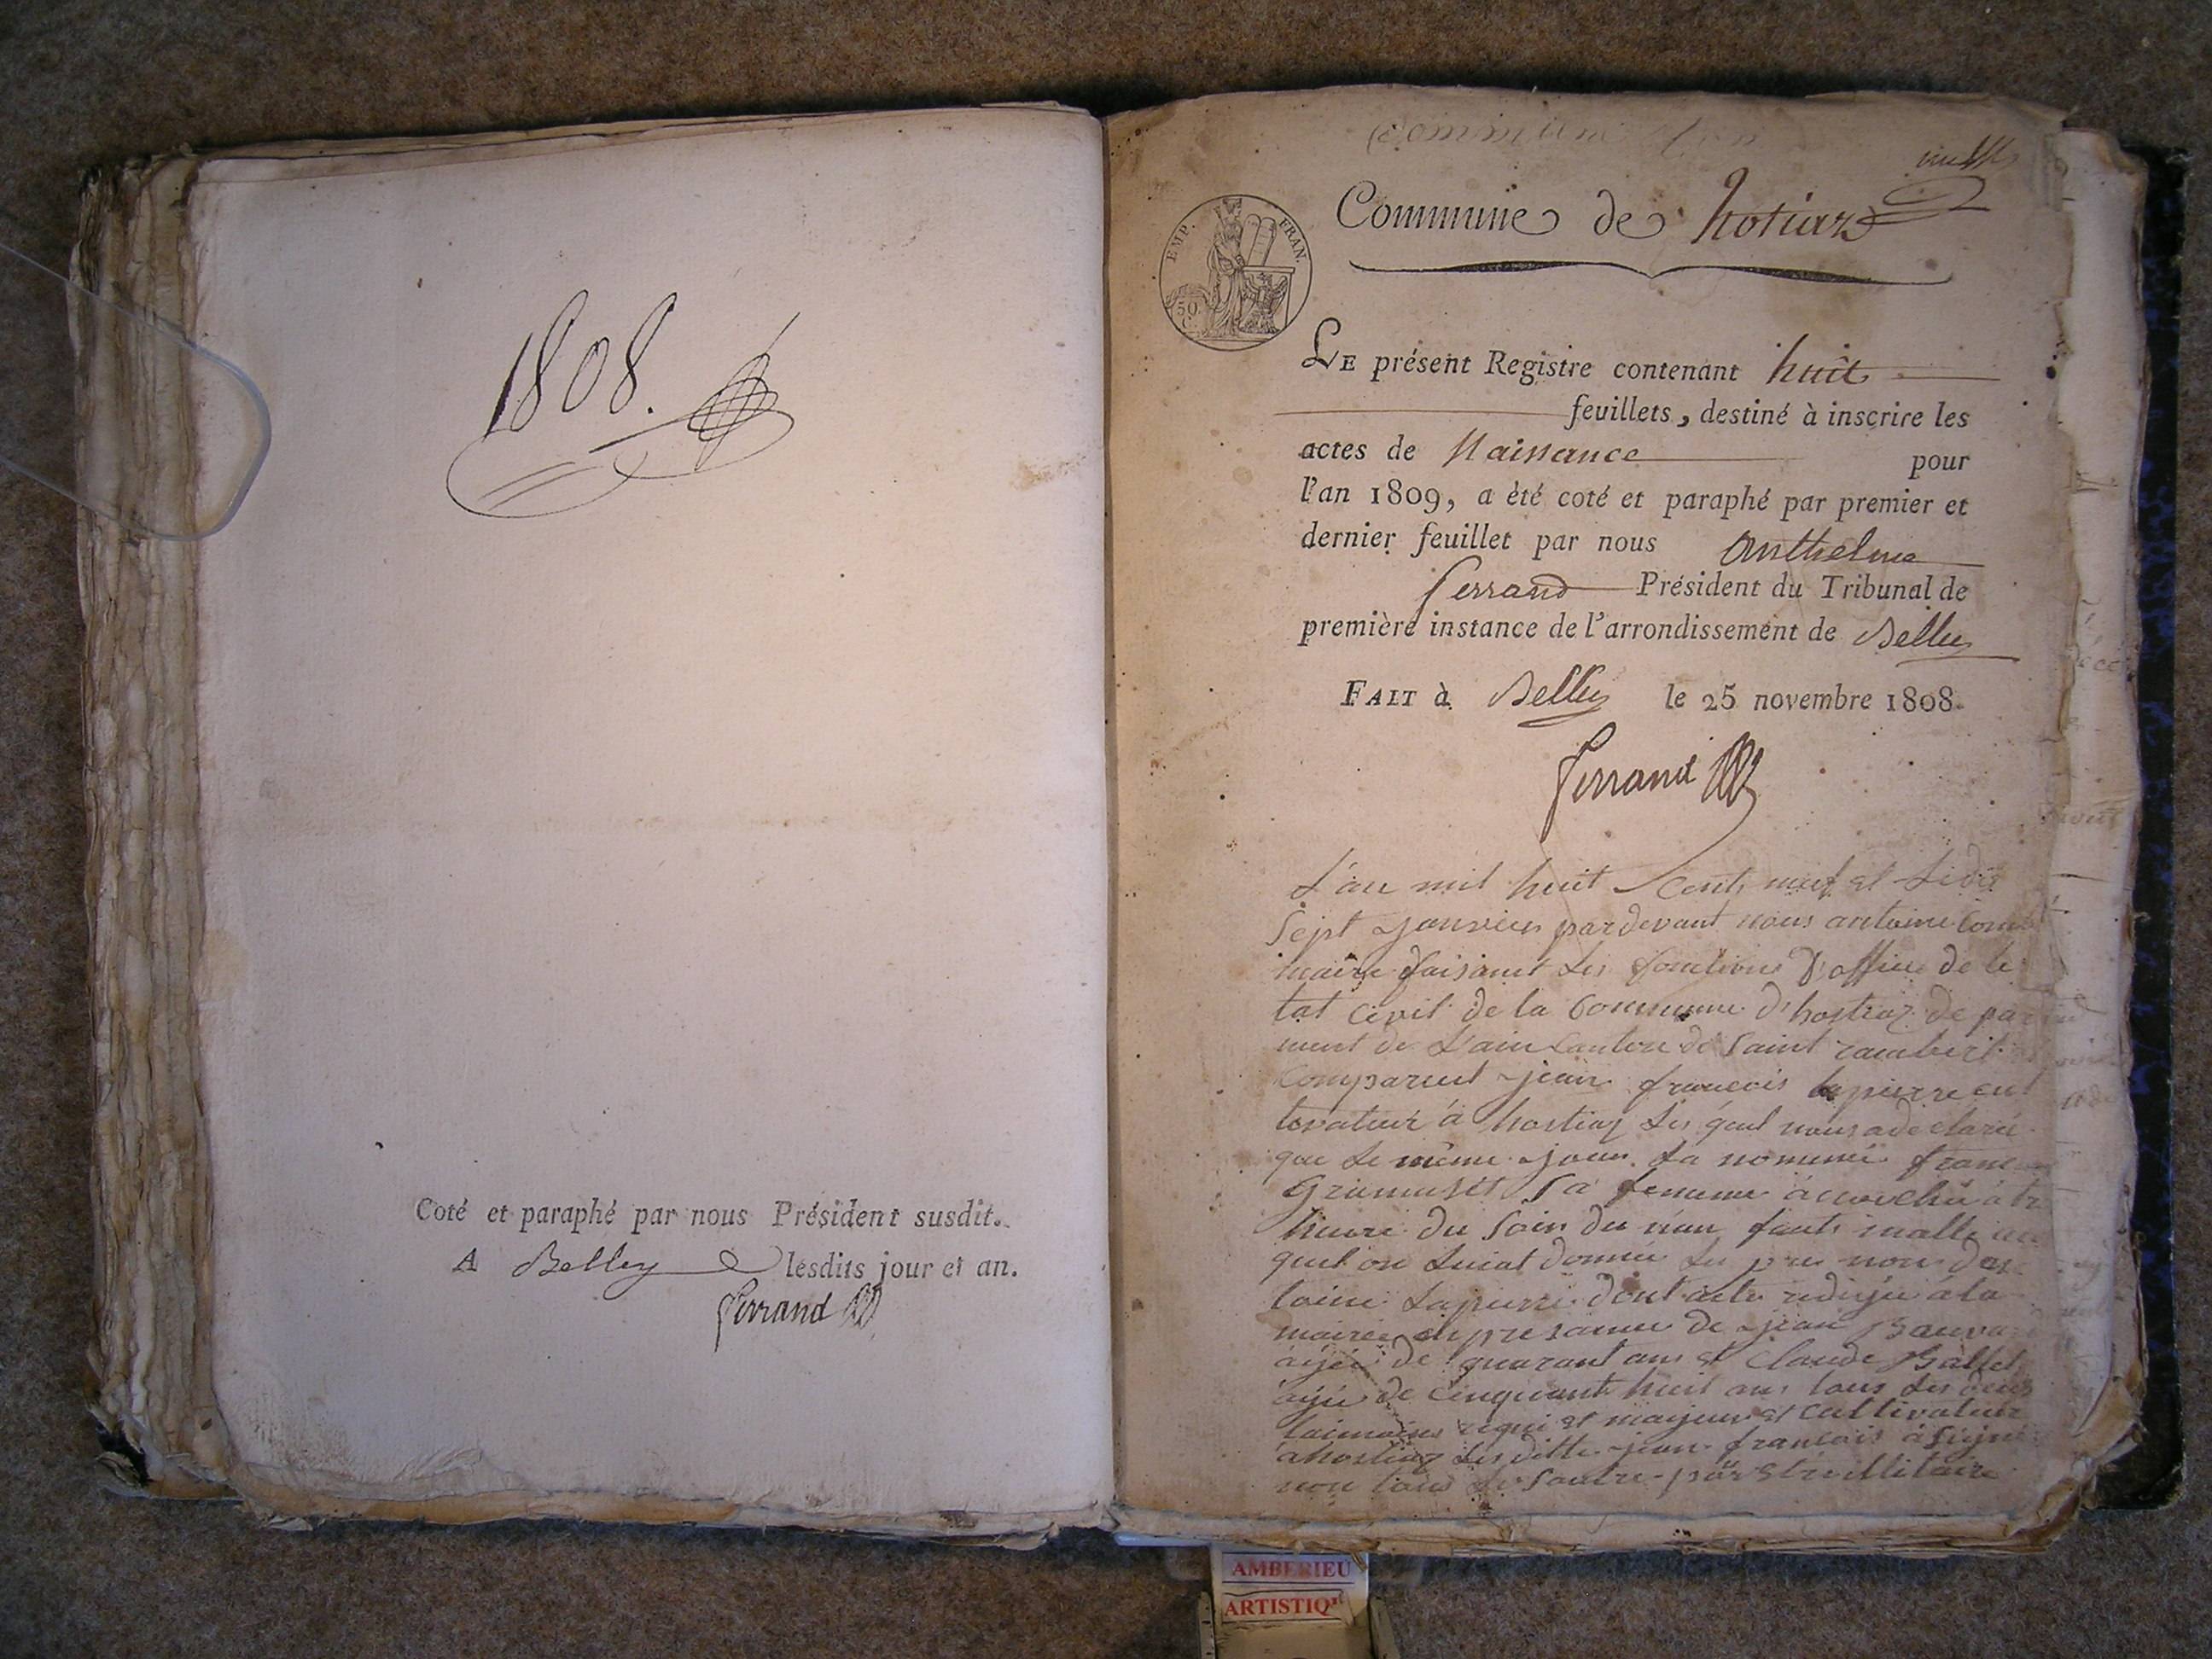 1808.
Coté et paraphé par nous Président susdit.
A Belley lesdits jour et an.
Ferrand
Commune de hotiaz
EMP. FRAN.
50
C.
LE présent Registre contenant huit
feuillets, destiné à inscrire les
actes de Naissance pour
l'an 1809, a été coté et paraphé par premier et
dernier feuillet par nous Anthelme
Ferrand Président du Tribunal de
première instance de l'arrondissement de Belley
FAIT à Belley le 25 novembre 1808.
Ferrand
L'an mil huit Cents neuf et le dix
sept janvier pardevant nous antoine
maire faisant les fonctions d'office de le
tat Civil de la Commune d'hostiaz de par
ment de L'ain Canton de Saint rambert
Comparent jean francois lapierre cul
tivateur à hostiaz les quel nous a declaré
que le même jour la nommé
Grumuset sa femme à couchü à
heure du soir du
quel on donnée les pre nom
toine Lapierre dont acte redigée à la
mairie en presance de jean
agée de quarant ans et Claude Ballet
agée de cinquante huit ans tous les deux
temoins et majeur et Cultivateur
à hostiaz jean francois à signé
non